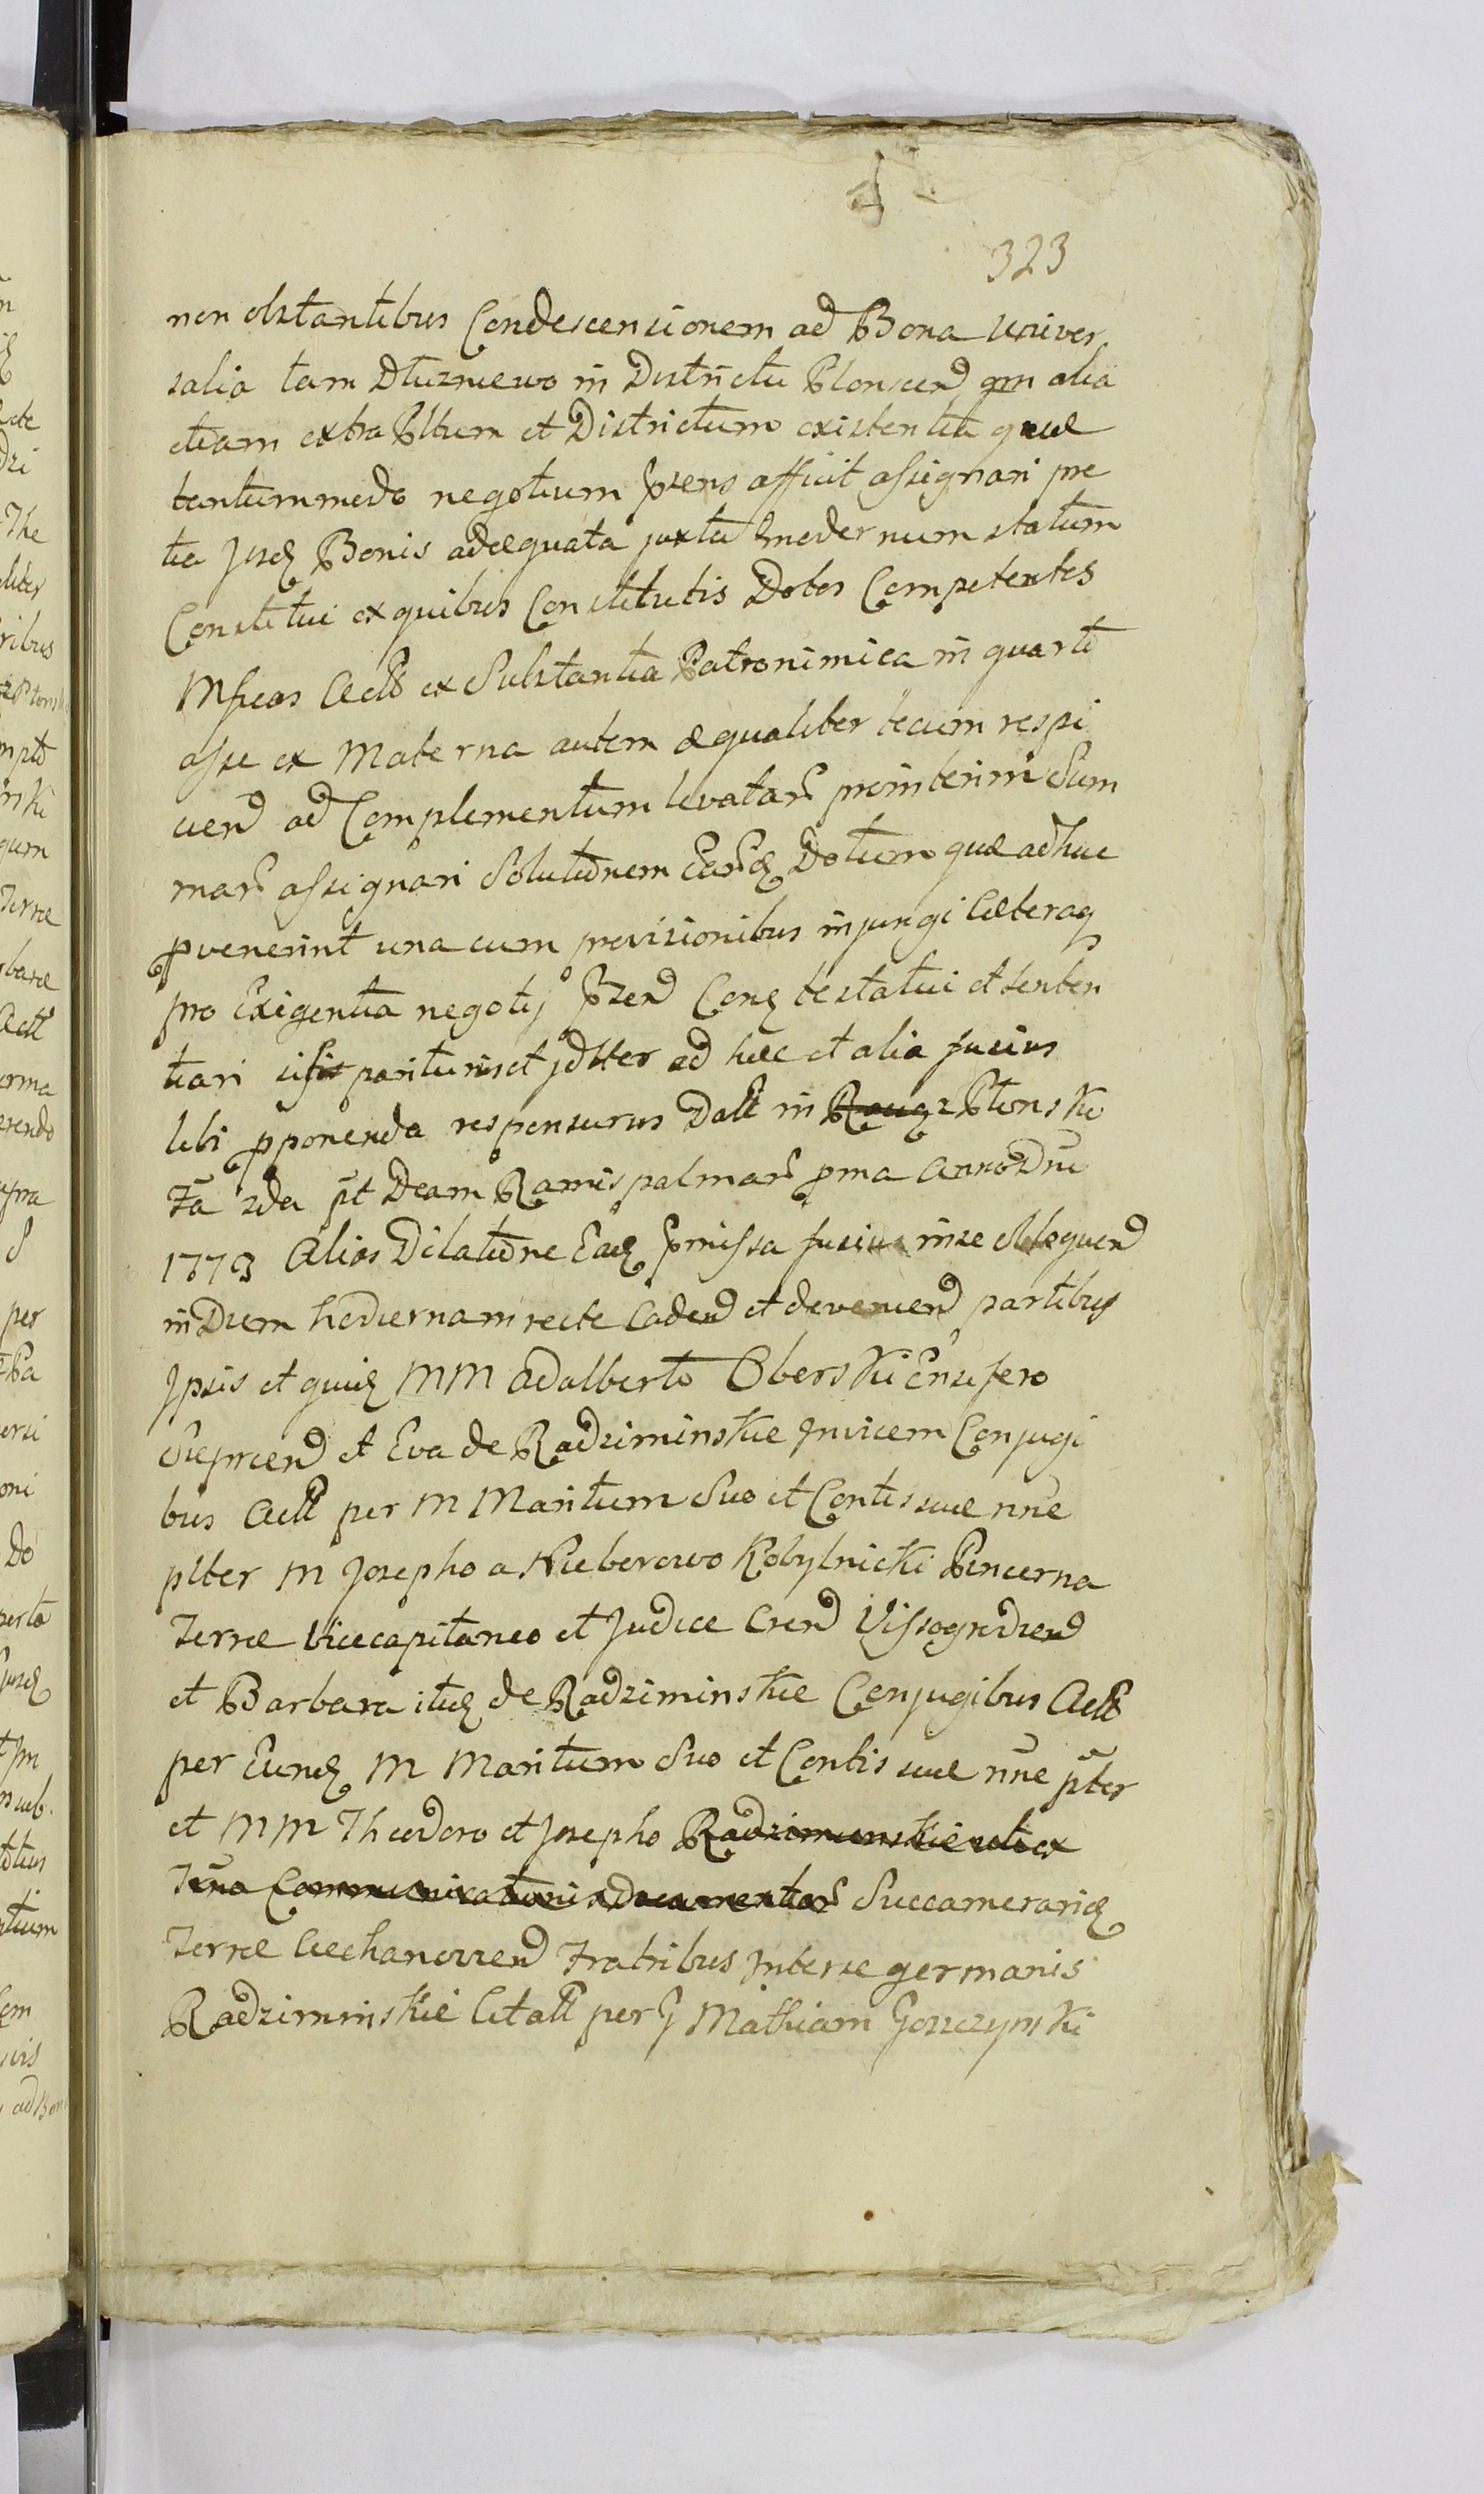 323
non obstantibus Condescensionem ad Bona univer
salia tam Dłużniewo in Districtu Plonscen qm alia
etiam extra Pltum et Districtum existentia quæ
tantummodo negotium pzens afficit assignari pre
tia Jisdē Bonis adæquata juxta modernum statum
Constitui ex quibus Constitutis Dotes Competentes
Mficas Act ex Substantia Patronimica in quarto
asse ex Materna autem æqualiter tecum respi
ciend ad Complementum levatar prointerim Sum
mar assignari Solutionem Eard Dotum quæ adhuc
pvenerint una cum provisionibus injungi Cæteraq
pro Exigentia negotij pzen Cond testatui et senten
tiari pariturus et jdtter ad hæc et alia fusius
tibi pponenda responsurus Datt in Płonsko
Fa 2da pt Dcam Ramis palmar pma Anno Dni
1773 Alias Dilatione Ead pmissa fusius in se obloquend
in Diem hodiernam recte Cadend et devenend partibus
Jpsis et quid MM Adalberto Oberski Ensifero
Sieprcend et Eva de Radziminskie Invicem Conjugi
bus Actt per M Maritum Suo et Contis suæ nne
plter M Josepho a Nieborowo Kobylnicki Pincerna
Terræ Vicecapitaneo et Judice Cren Vissogrodien
et Barbara itid de Radziminskie Conjugibus Actt
per Eund M Maritum Suo et Contis suæ nne pter
et MM Theodoro et Josepho Radziminskie
Communicationis Documentor Succamerarid
Terræ Ciechanovien Fratribus Inter se germanis
Radziminskie Citatt per G Mathiam Goszczynski